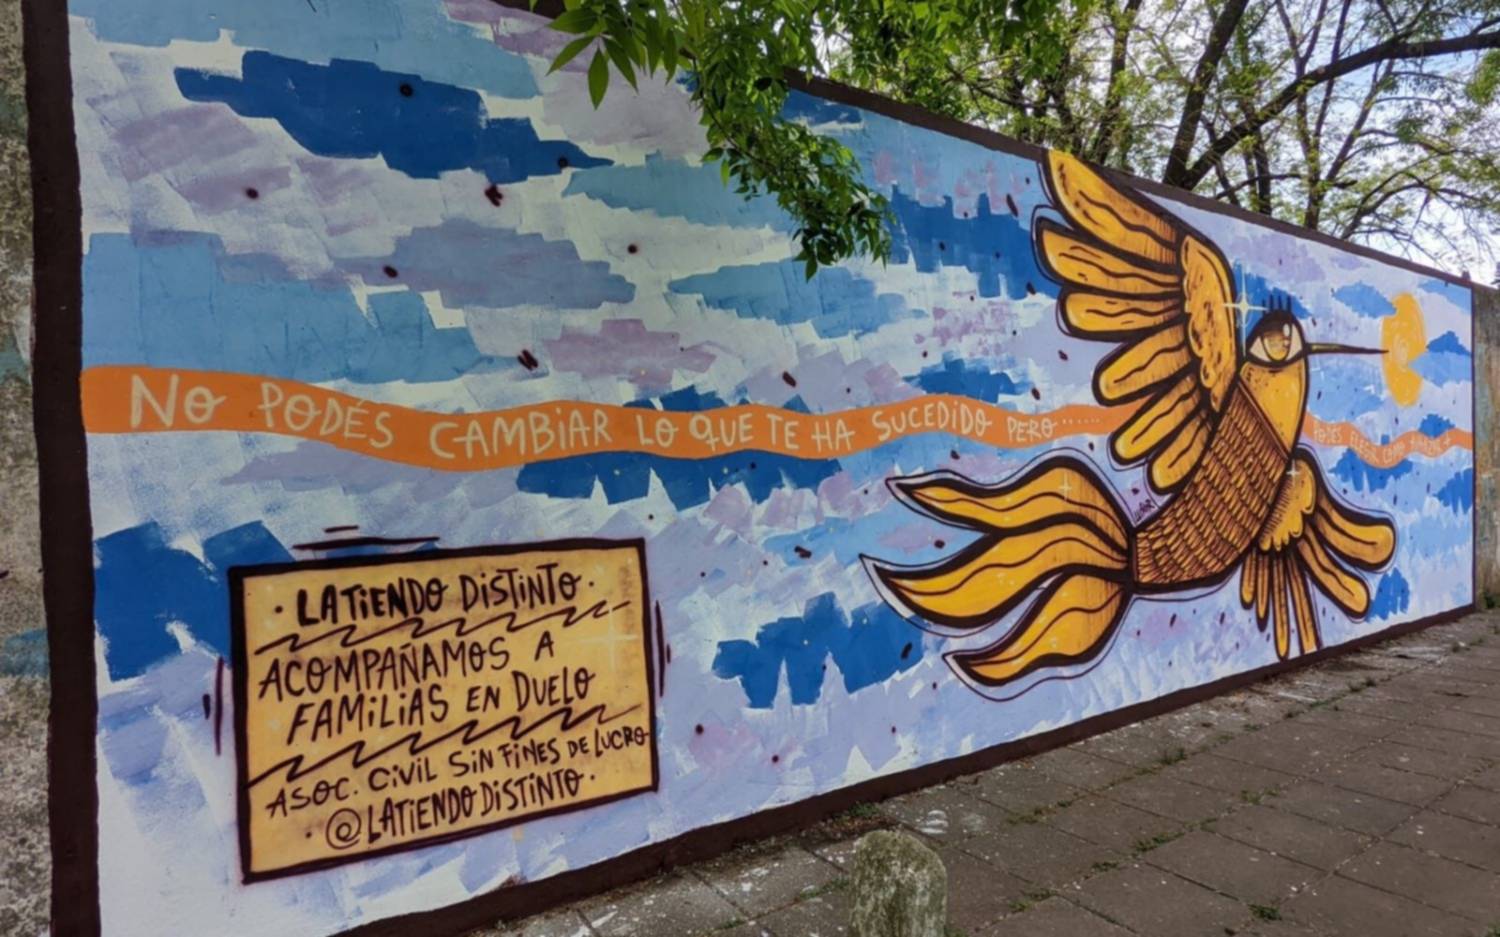 NO PODÉS CAMBIAR LO QUE TE HA SUCEDIDO PERO......
PODÉS ELEGIR
· LATIENDO DISTINTO ·
ACOMPAÑAMOS A
FAMILIAS EN DUELO
ASOC. CIVIL SIN FINES DE LUCRO
· @LATIENDODISTINTO ·